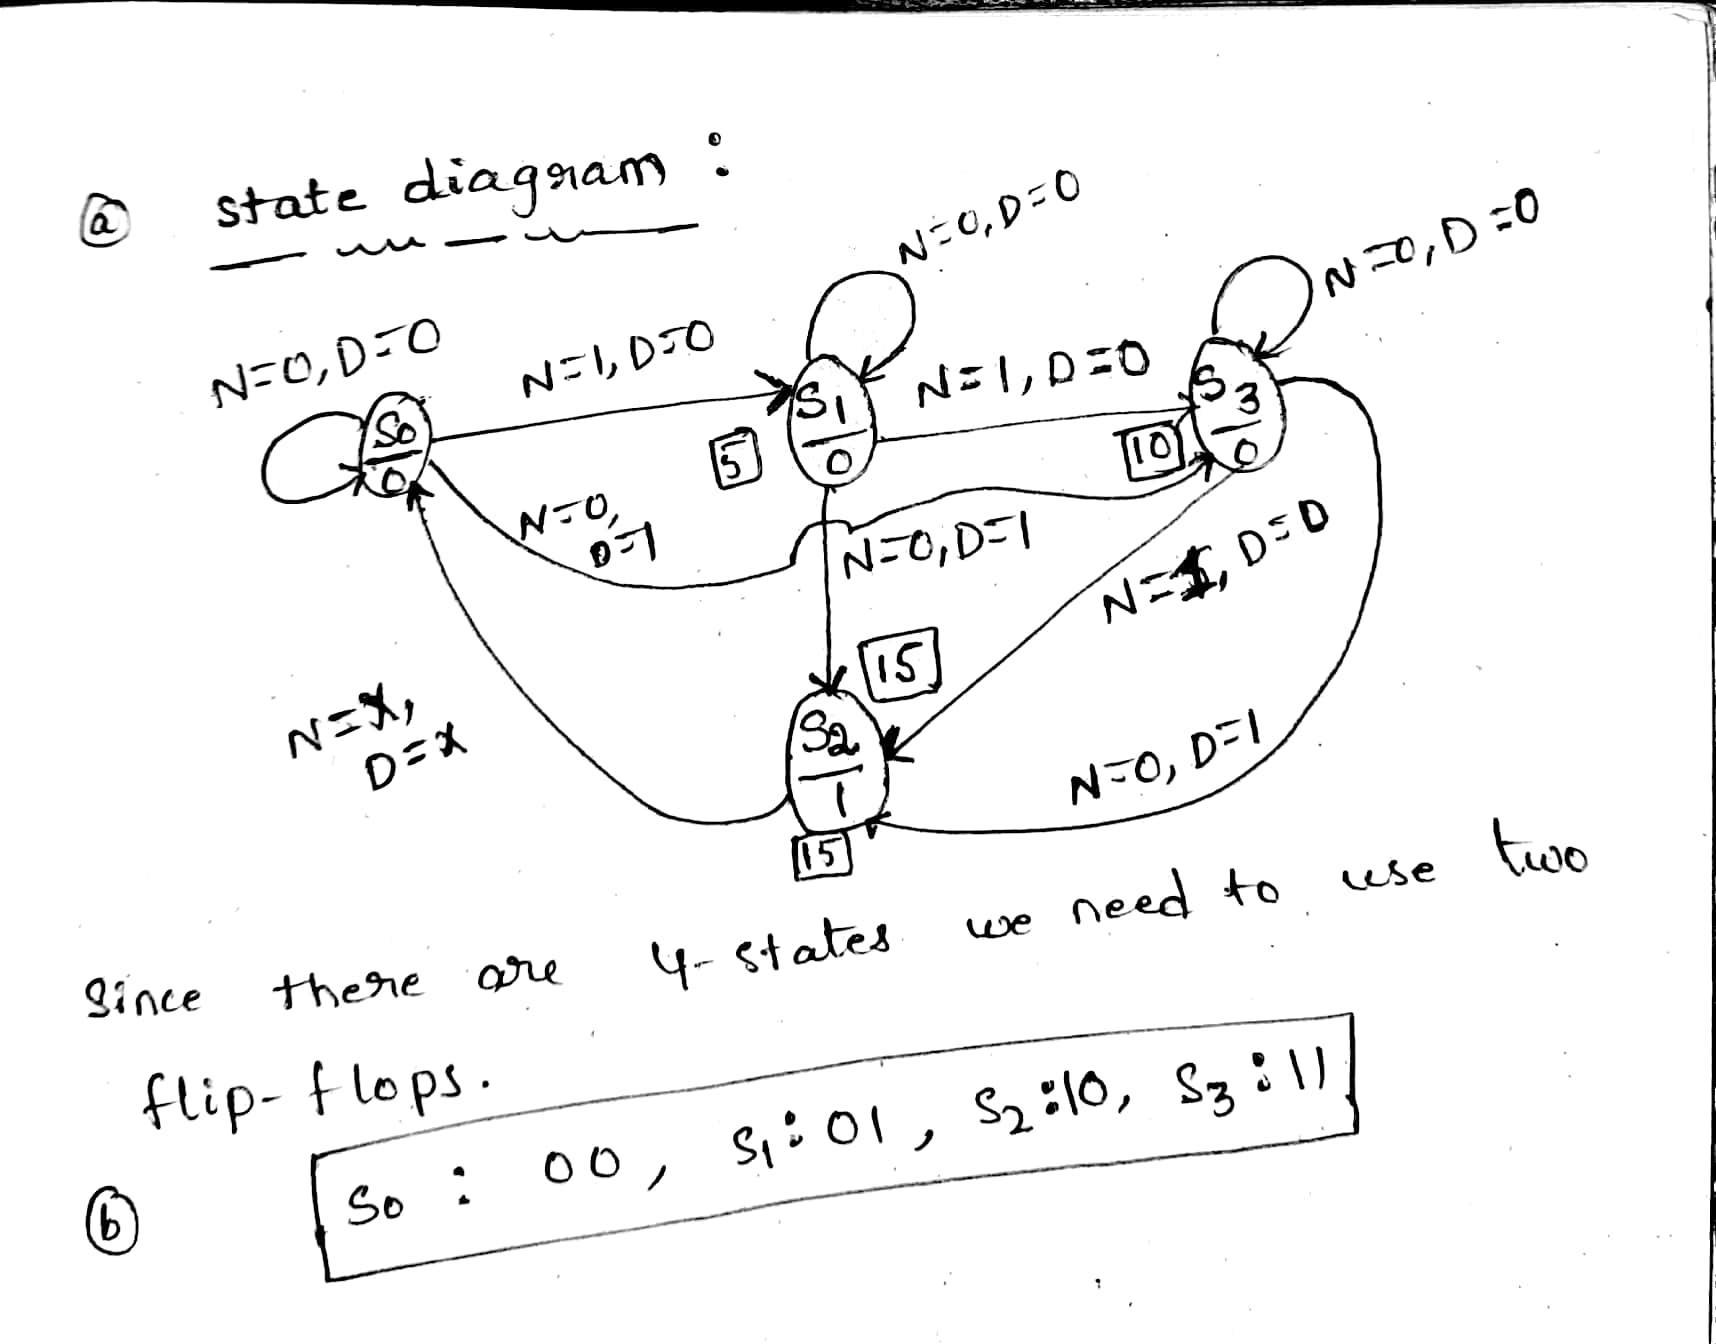 ⓐ state diagram :
N=0, D=0
N=1, D=0
N=0, D=0
N=1, D=0
N=0, D=0
S0
0
5
S1
0
10
S3
0
N=0,
D=1
N=0, D=1
N=1, D=0
15
N=X,
D=X
S2
1
N=0, D=1
15
Since there are 4-states we need to use two
flip-flops.
ⓑ S0 : 00, S1 : 01, S2 : 10, S3 : 11